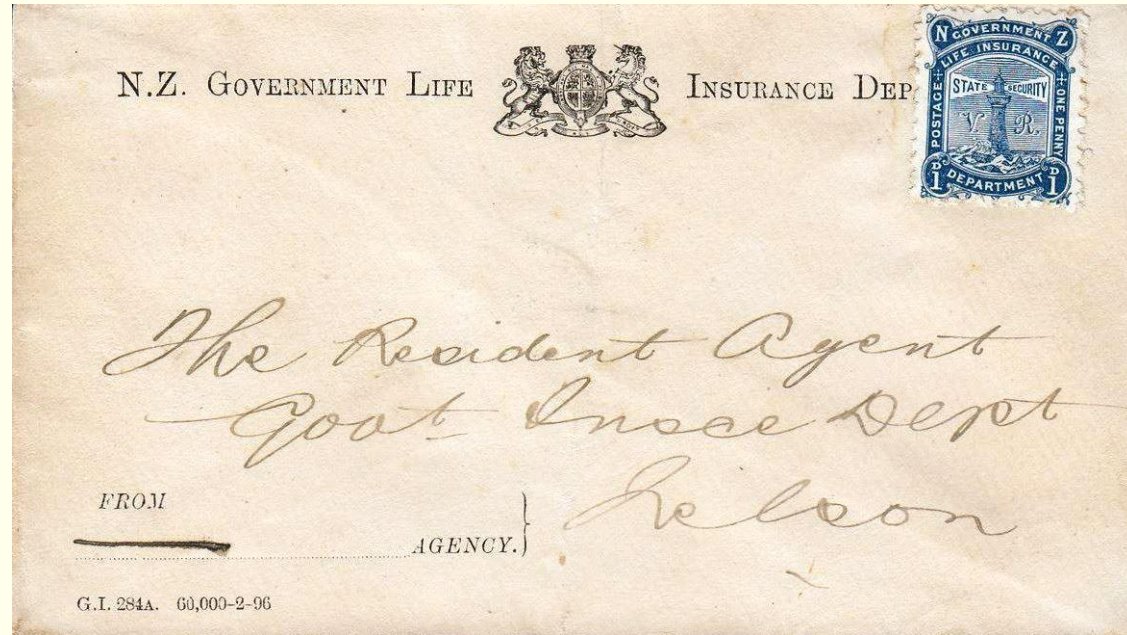 N.Z. GOVERNMENT LIFE INSURANCE DEP
N GOVERNMENT Z
LIFE INSURANCE
POSTAGE
STATE SECURITY
ONE PENNY
V. R.
D1 DEPARTMENT D1
The Resident Agent
Govt Insce Dept
Nelson
FROM
AGENCY.
G.I. 284A. 60,000-2-96